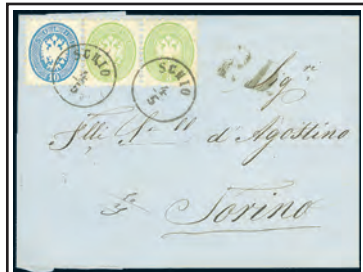 10
SCHIO
4/5
SCHIO
4/5
Sig.ri
F.lli
d'Agostino
Torino